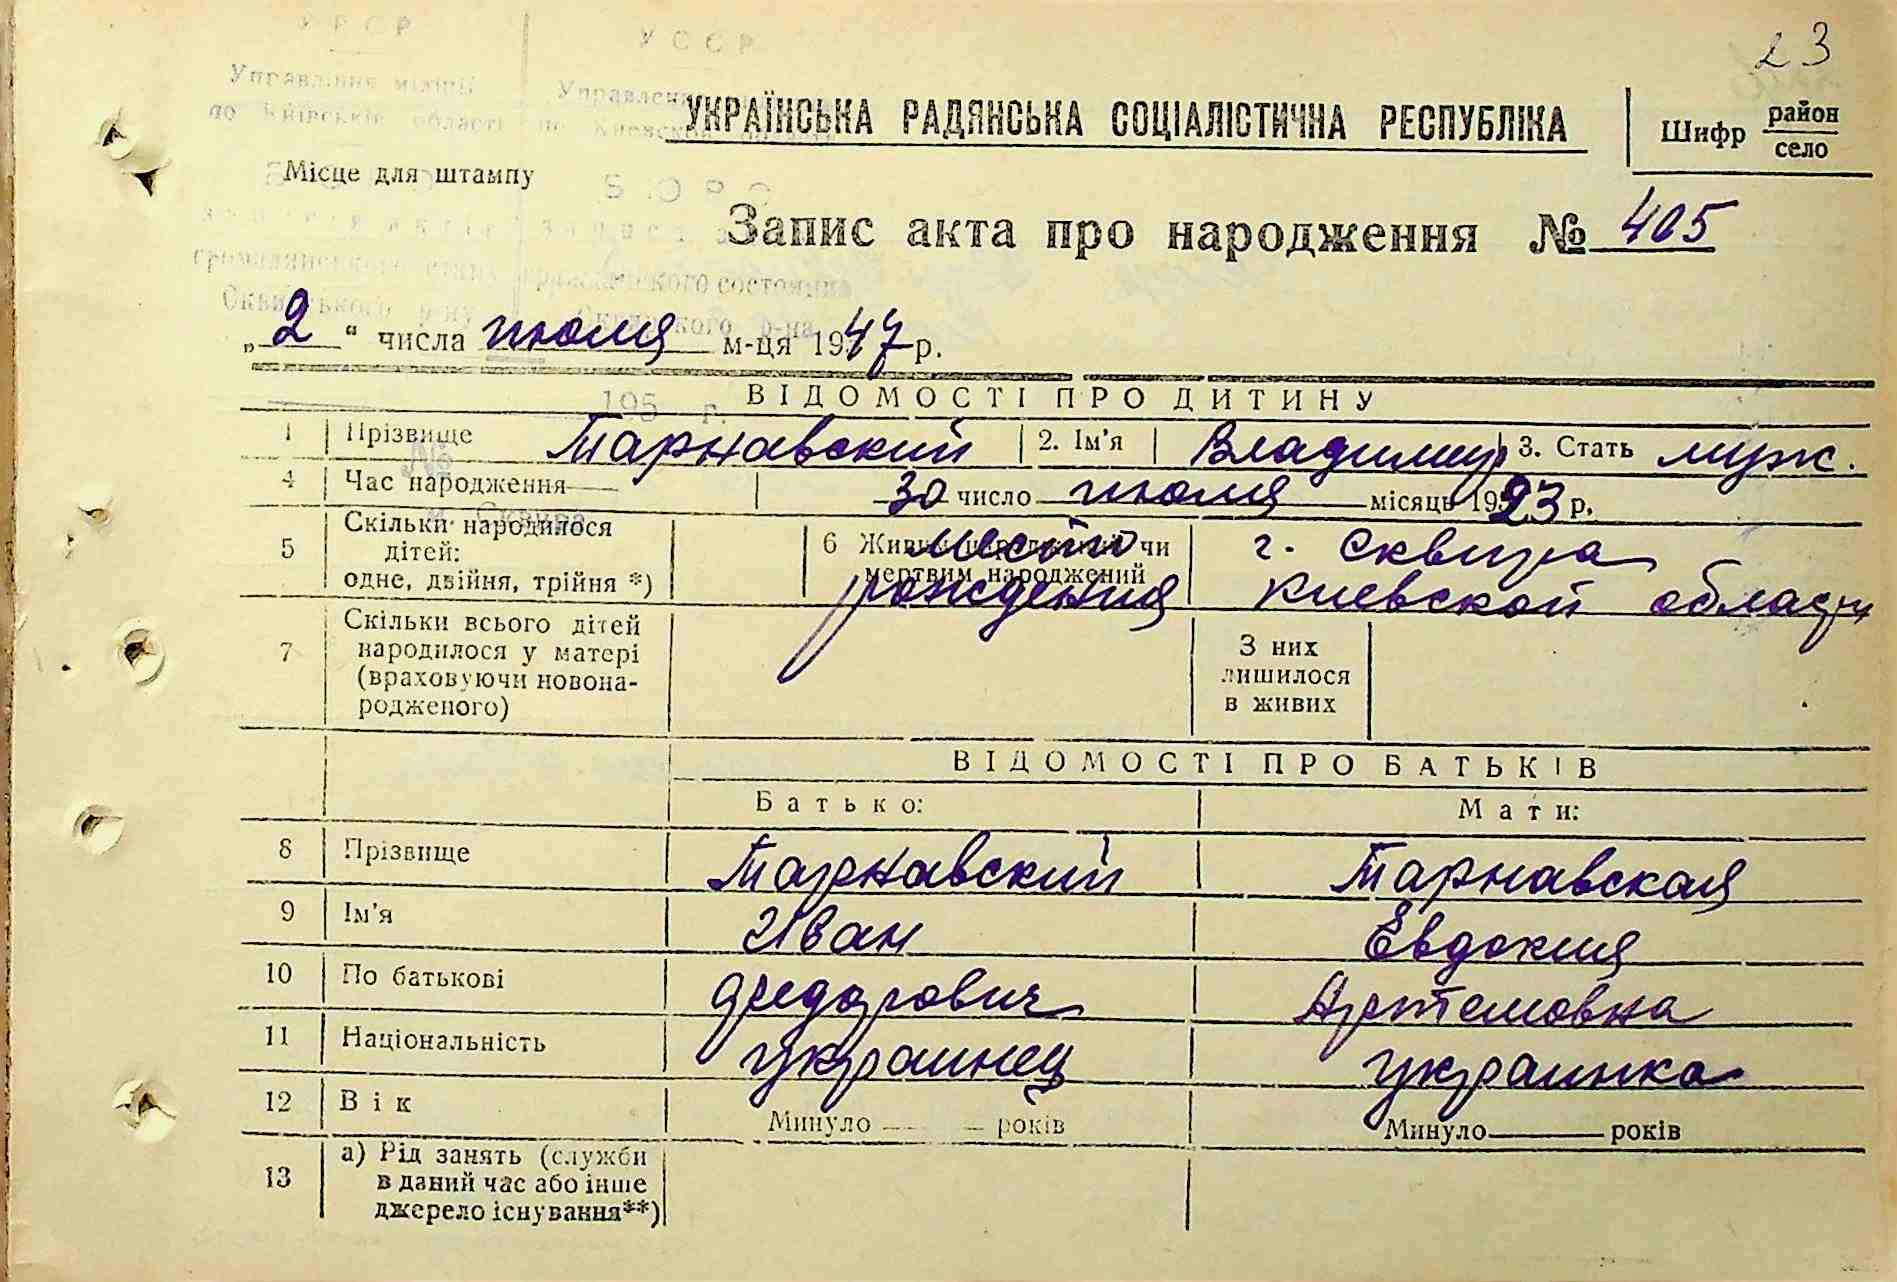 23
УРСР УССР
Управління міліції Управлени
по Київській області по Киевск
УКРАЇНСЬКА РАДЯНСЬКА СОЦІАЛІСТИЧНА РЕСПУБЛІКА
Шифр район
село
Місце для штампу
БЮРО
Запис акта про народження № 405
громадянського стану гражданского состояния
Сквирського р-ну Сквирского р-на
„2“ числа июля м-ця 1947 р.
195 г.
ВІДОМОСТІ ПРО ДИТИНУ
1 Прізвище Тарнавский 2. Ім'я Владимир 3. Стать муж.
№
4 Час народження 30 число июля місяць 1923 р.
м. Сквира
5 Скільки народилося
дітей:
одне, двійня, трійня *)
6 Живим народжений чи
мертвим народжений
место
рождения
г. Сквира
Киевской области
7 Скільки всього дітей
народилося у матері
(враховуючи новона-
родженого)
З них
лишилося
в живих
ВІДОМОСТІ ПРО БАТЬКІВ
Батько: Мати:
8 Прізвище Тарнавский Тарнавская
9 Ім'я Иван Евдокия
10 По батькові Федорович Артемовна
11 Національність украинец украинка
12 Вік Минуло — років Минуло — років
13 а) Рід занять (служби
в даний час або інше
джерело існування**)